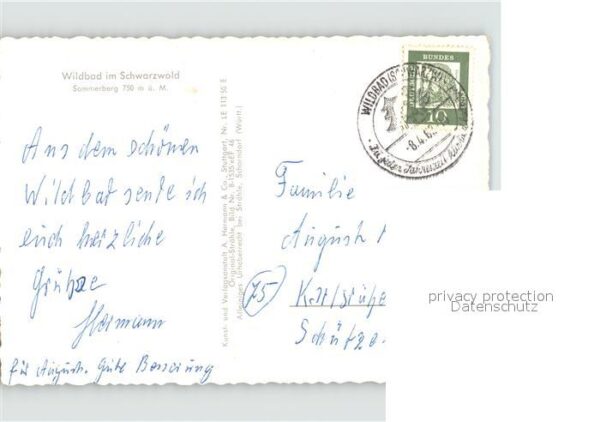 Wildbad im Schwarzwald
Sommerberg 750 m ü. M.
Aus dem schönen
Wildbad sende ich
euch herzliche
Grühse
Hermann
für August. Gute Besserung
Kunst- und Verlagsanstalt A. Hermann & Co. Stuttgart, Nr. LE 113 50 E
Original-Strähle, Bild Nr. B-1535 eEF 46
Alleiniges Urheberrecht bei Strähle, Schorndorf (Württ.)
DEUTSCHE BUNDESPOST
10
WILDBAD (SCHWARZWALD)
-8.4.62
Zu jeder Jahreszeit
Familie
August
75
Karlsruhe
Schütze
privacy protection
Datenschutz